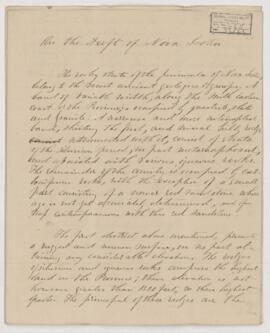 On the Drift of Nova Scotia
The rocky strata of the peninsula of Nova Scotia
belong to the most ancient geological groups. A
band of variable width, along the south eastern
coast of the Province, is occupied by quartzite, slate
and granite. A narrower and more interrupted
band, skirting the first, and
associated with it, consist of strata
of the Silurian period, in part metamorphosed,
and associated with various igneous rocks.
The remainder of the country is occupied by
rocks, with the exception of a small
part consisting of a newer red sandstone whose
age is not yet accurately determined, and of
trap contemporaneous with this red sandstone.
The first district above mentioned, presents
a rugged and uneven surface, in no part at-
taining any considerable elevation. The ridges
of Silurian and igneous rocks comprise the highest
land in the Province; their elevation is not
however greater than 1200 feet, in their highest
parts. The principal of these ridges are the